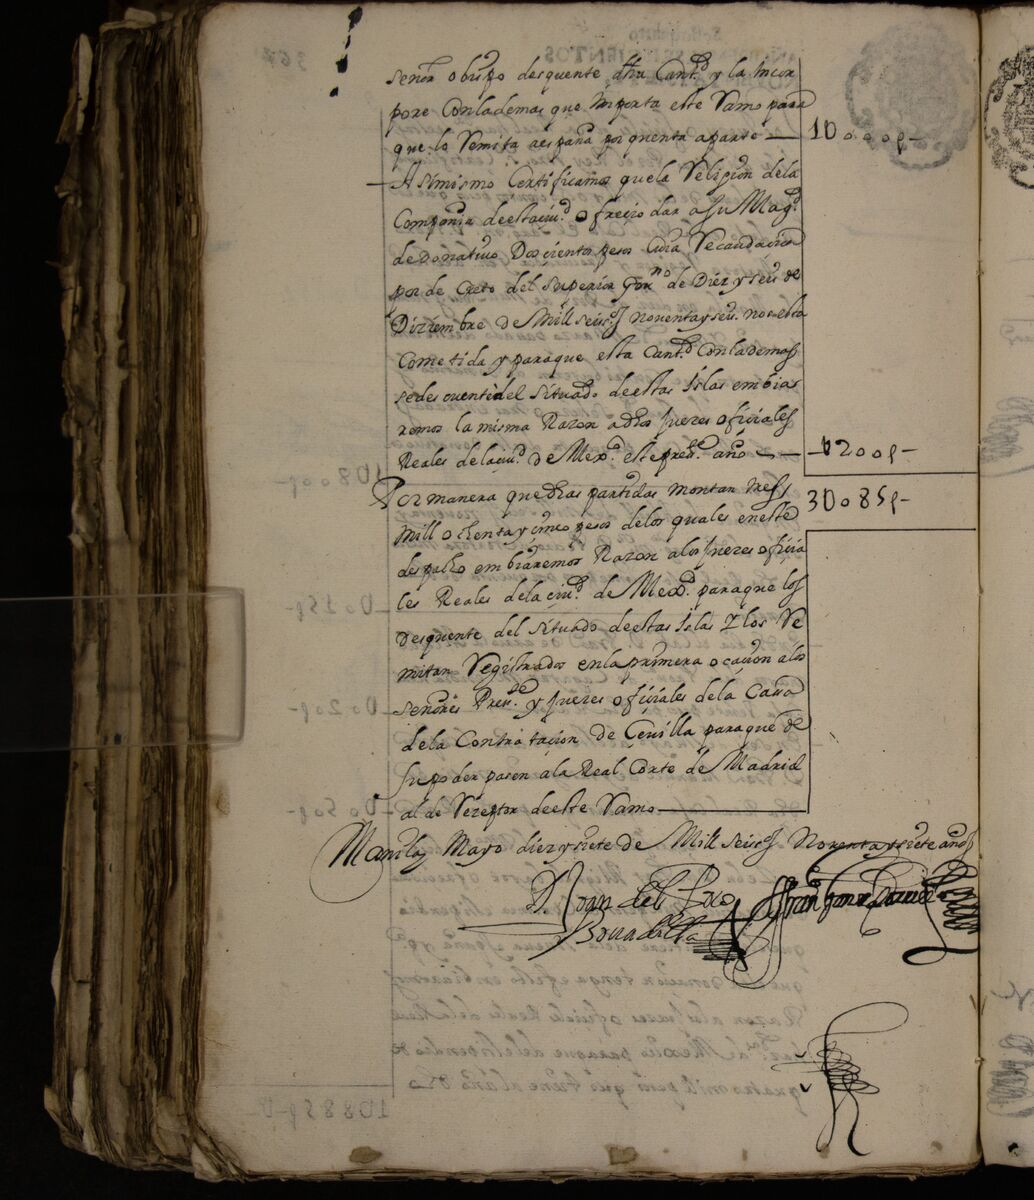 señor obispo desquente dha Cantd. y la Incor
pore Conlademas que Importa este Ramo para
que lo Remita a españa por quenta aparte — 1U000p
Asimismo Certificamos quela Religion dela
Compañia deestaciud. ofrecio dar asu Magd.
dedonatiuo Doscientos pesos Cuia Recaudacion
por de Creto del superior Gouno. de Diez y seis de
Diziembre de Mill seiss. nouenta y seis. nos esta
Cometida y paraque esta Cantd. Conlademas
sedes cuentedel situado deestas Islas embia
remos la misma Razon adhos Jueses ofiziales
Reales delaciud. de Mexco. estepreste. año — U200p
Por manera quedhas partidas montan tres
mill ochenta y cinco pesos delos quales eneste
despacho embiaremos Razon alos Jueses oficia
les Reales dela ciud. de Mexco. paraque los
Desquente del situado deestas Islas y los Re
mitan Registrados enla primera ocacion alos
señores Preste. y Jueses ofiziales dela Cassa
dela Contratacion de Ceuilla paraque de
su poder pasen ala Real Corte de Madrid
al de Rezeptor deeste Ramo
3U085p
Manila y Mayo diez y siete de Mill seiss. Nouenta y siete años
D. Joan del Pozo